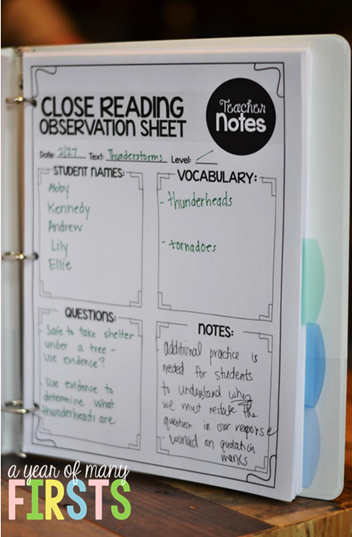 CLOSE READING
OBSERVATION SHEET
Teacher
Notes
Date: 2/27 Text: Thunderstorms Level:
STUDENT NAMES:
Abby
Kennedy
Andrew
Lily
Ellie
VOCABULARY:
- thunderheads
- tornadoes
QUESTIONS:
- Safe to take shelter
under a tree -
use evidence?
- Use evidence to
determine what
thunderheads are
NOTES:
additional practice is
needed for students
to understand why
we must restate the
question in our response
worked on quotation
marks
a year of many
FIRSTS